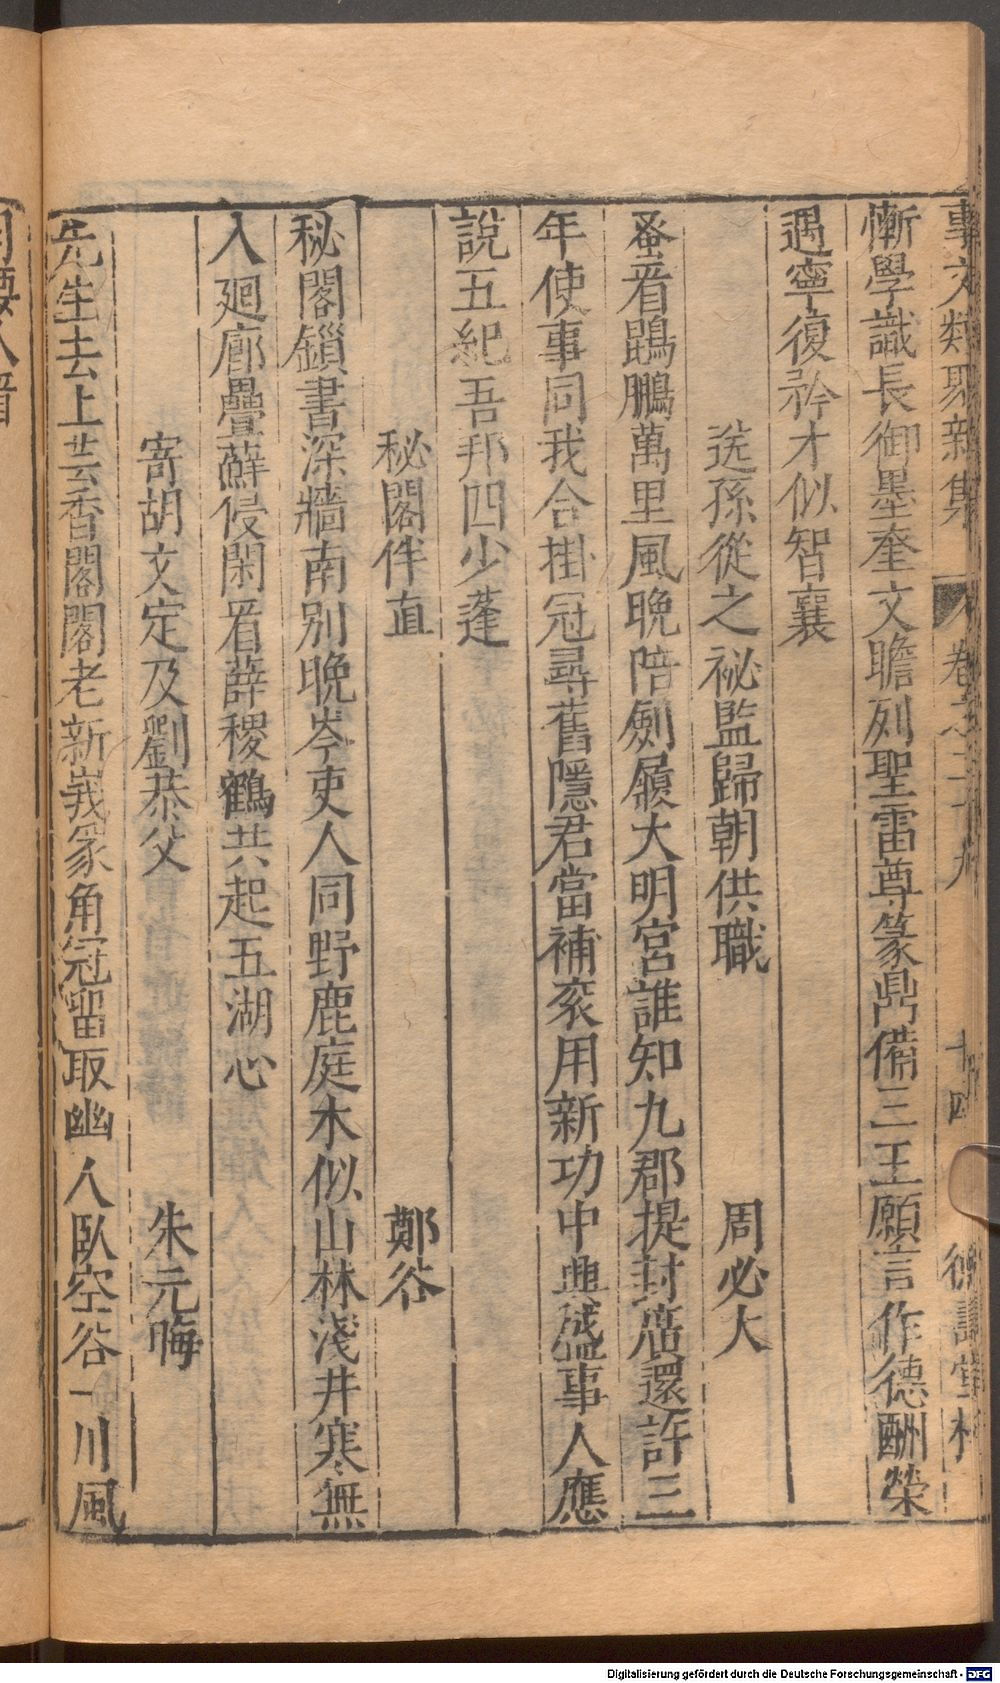 事文類聚新集 卷之二十九 十四 德壽堂梓
慚學識長御墨奎文瞻列聖雷尊篆鼎備三王願言作德酬榮
遇寧復矜才似智襄
送孫從之祕監歸朝供職 周必大
蚤看鵾鵬萬里風晚陪劍履大明宮誰知九郡提封廣還許三
年使事同我合掛冠尋舊隱君當補衮用新功中興盛事人應
說五紀吾邦四少蓬
秘閣伴直 鄭谷
秘閣鎻書深牆南別晚岑吏人同野鹿庭木似山林淺井寒無
入廻廊疊蘚侵閑看薛稷鶴共起五湖心
寄胡文定及劉恭父 朱元晦
先生去上芸香閣閣老新峩豸角冠留取幽人臥空谷一川風
Digitalisierung gefördert durch die Deutsche Forschungsgemeinschaft - DFG